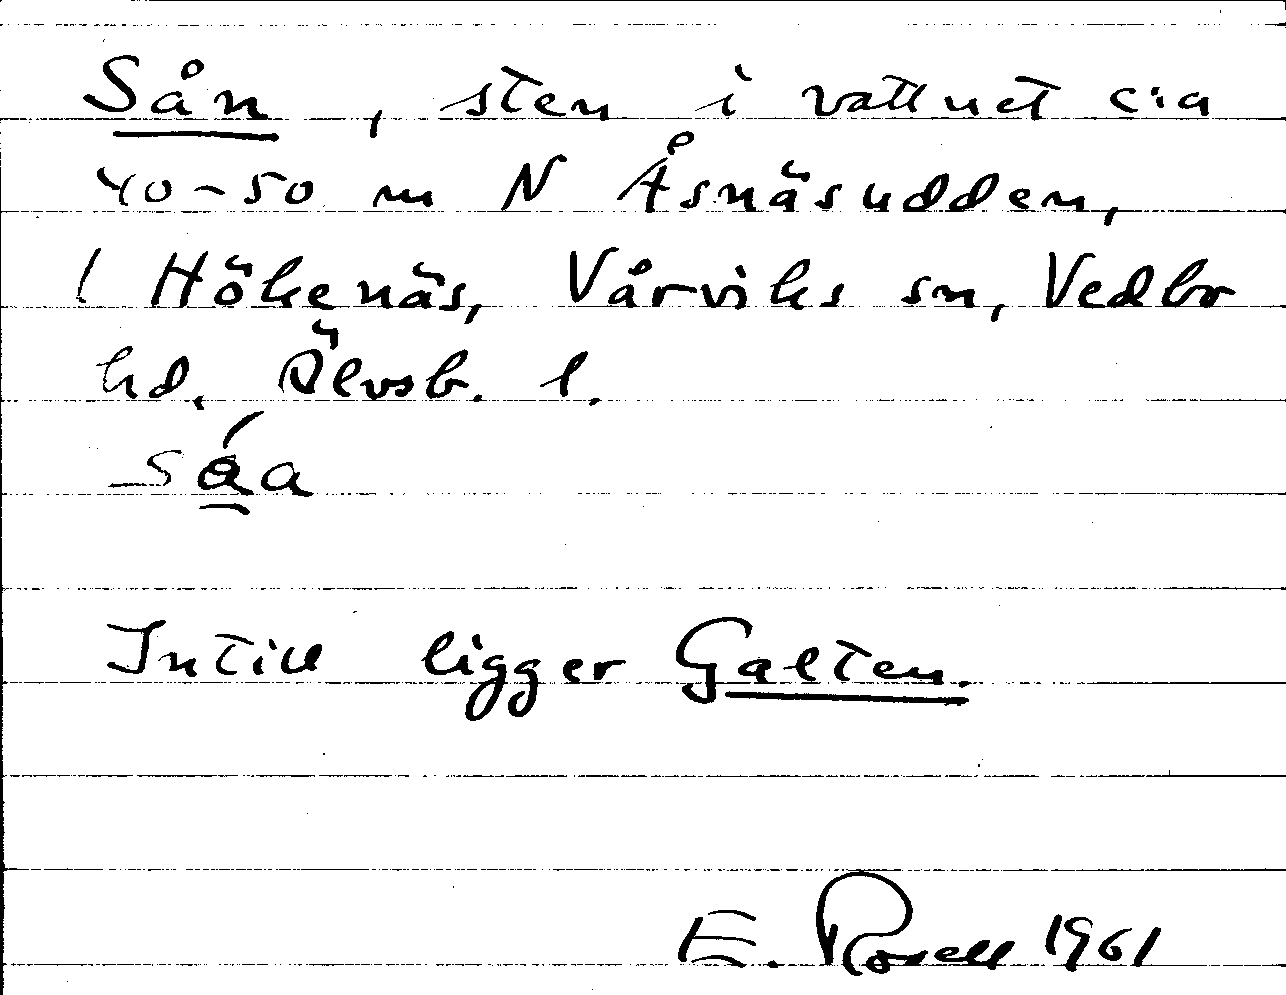 Sån, sten i vattnet c:a
40-50 m N Åsnäsudden,
( Hökenäs, Vårviks sn, Vedbo
hd. Älvsb. l.
såa
Intill ligger Galten.
E. Rosell 1961